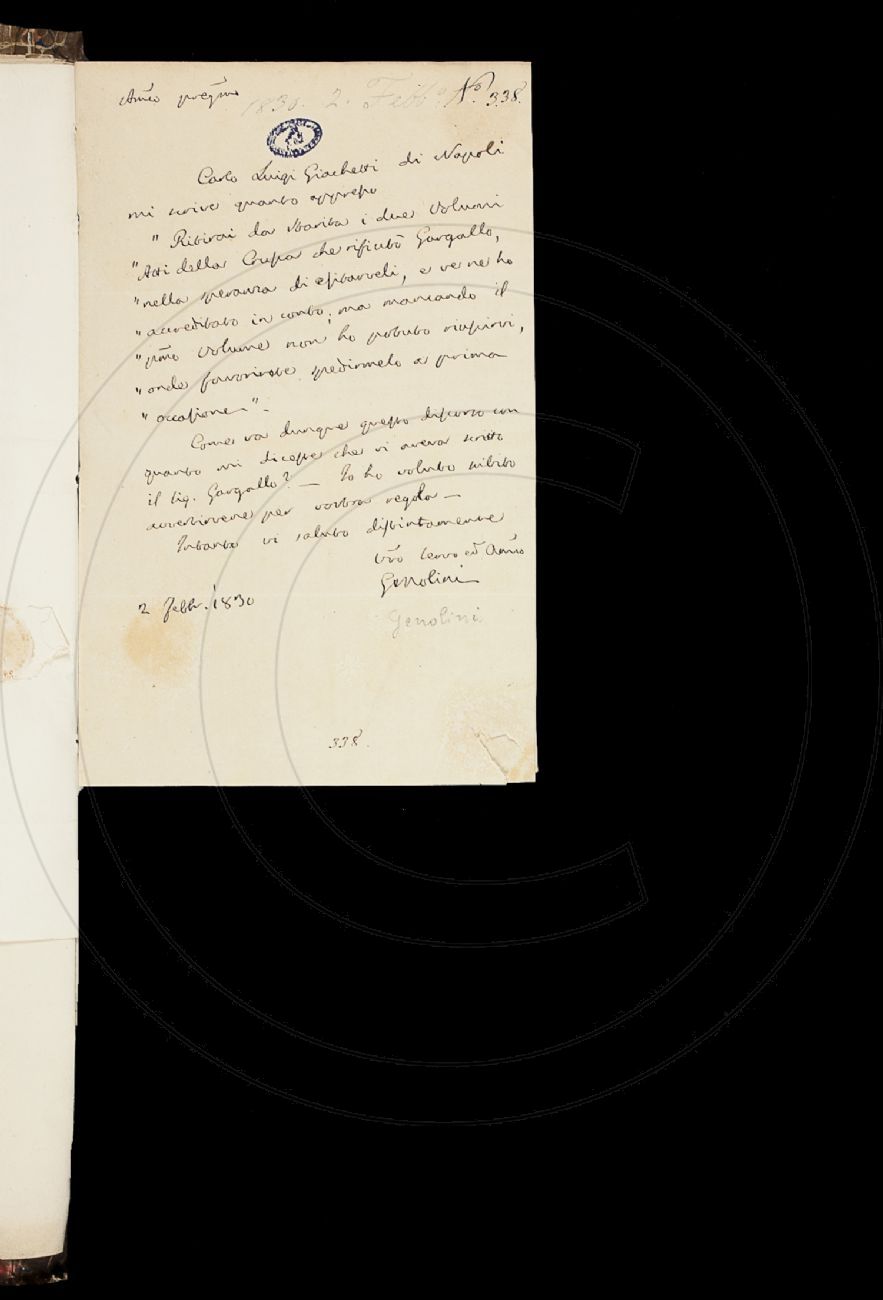 Amĩo pregmõ
1830. 2. Febb.º Nº. 338.
Carlo Luigi Giachetti di Napoli
mi scrive quanto appresso
" Ritirai da Starita i due Volumi
" Atti della Crusca che rifiutò Gargallo,
" nella speranza di esitarveli, e ve ne ho
" accreditato in conto; ma mancando il
" pmõ Volume non ho potuto riuscirvi,
" onde favorirete spedirmelo a prima
" occasione".
Come va dunque questo discorso con
quanto mi diceste che vi aveva scritto
il Sig. Gargallo? — Io ho voluto subito
avvertirvene per vostra regola —
Intanto vi saluto distintamente
Vr̃o Servo ed Amĩo
Genolini
2 Febbr. 1830
Genolini
338.